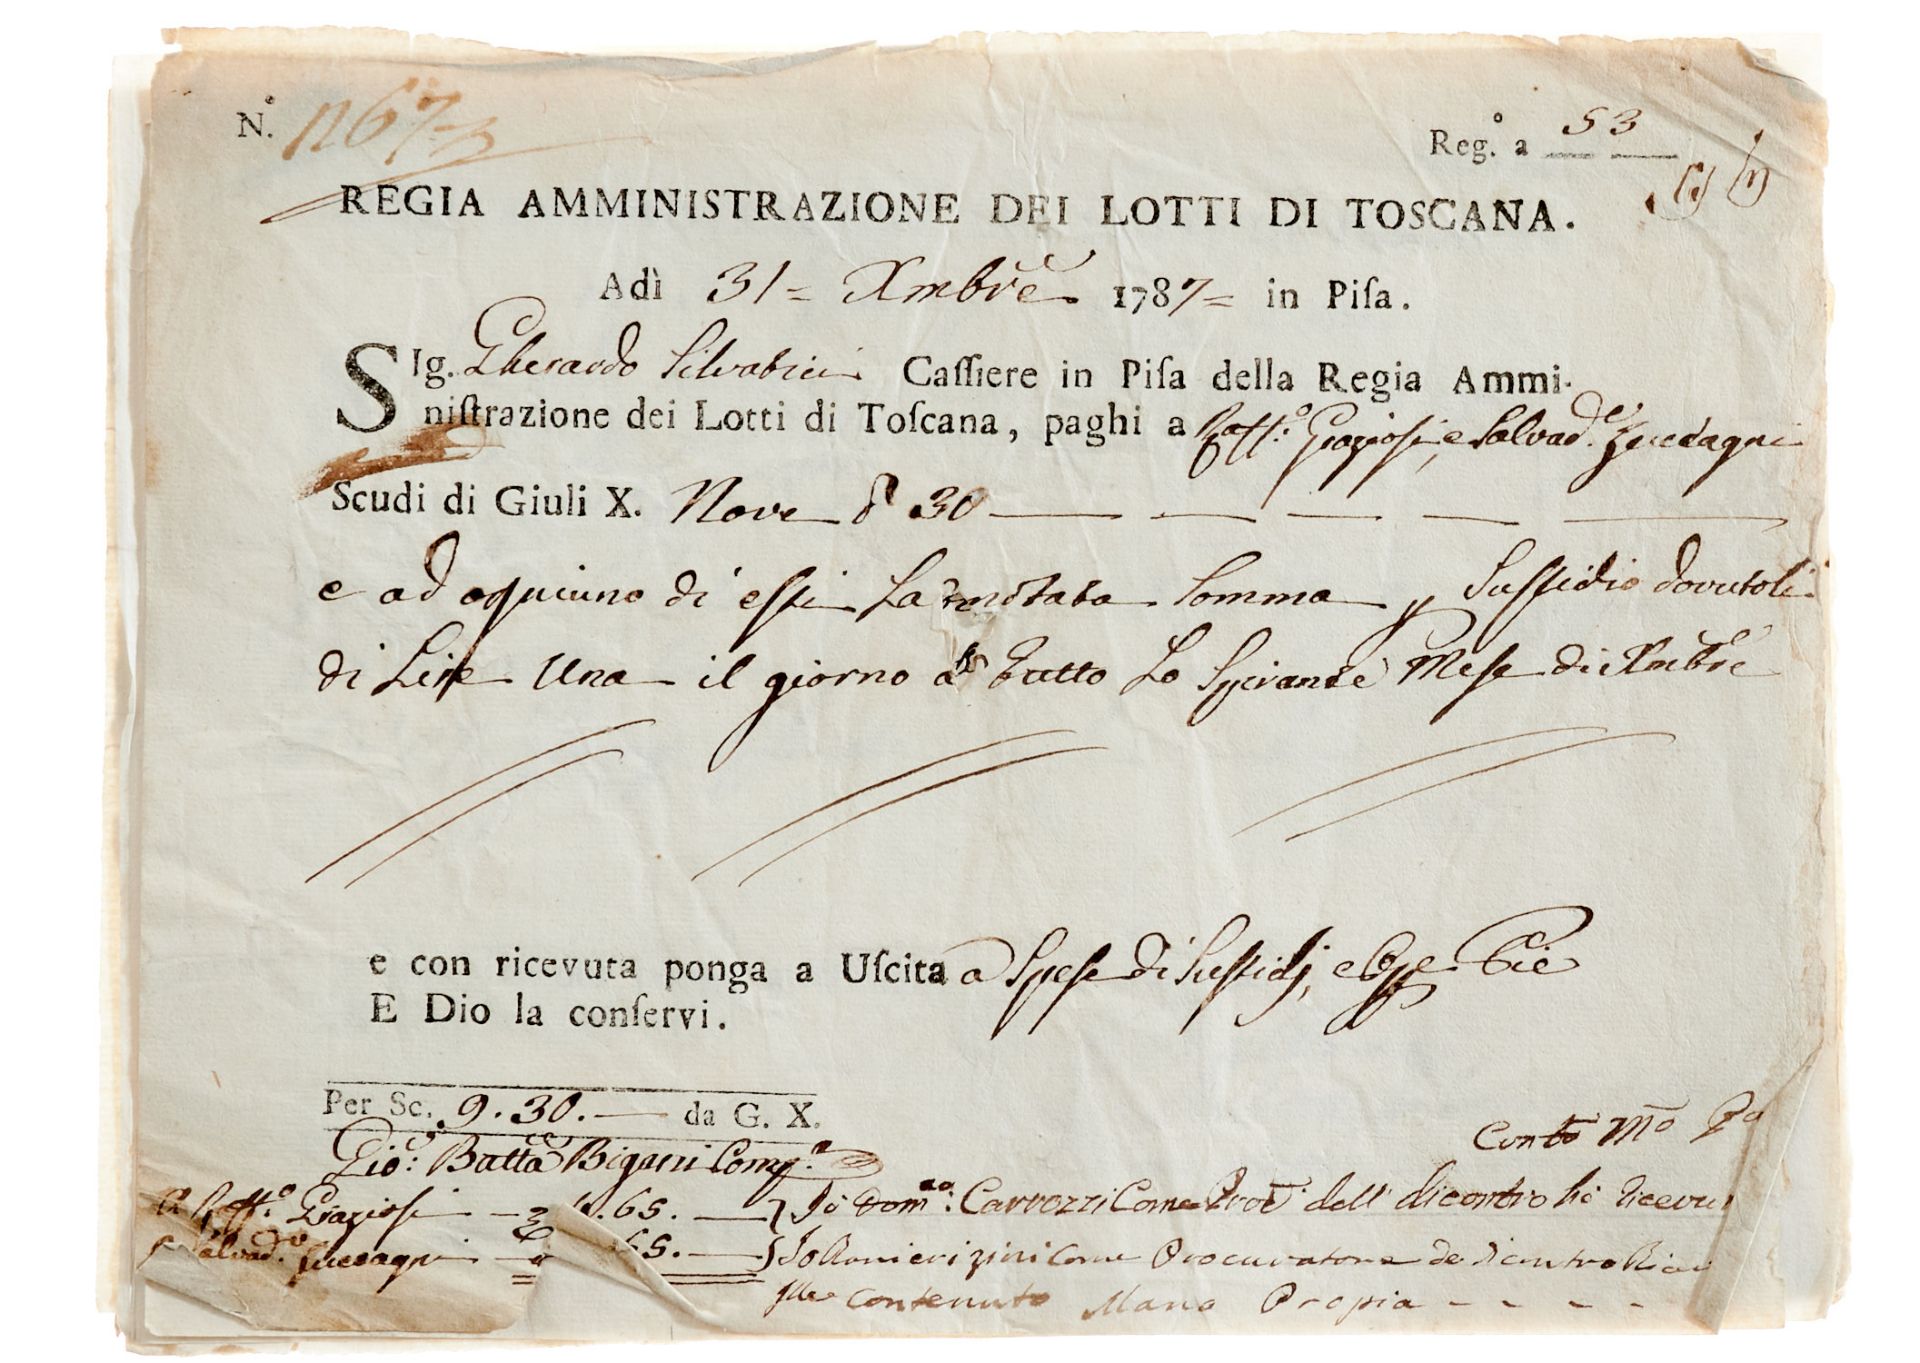 N.º 1267
Reg.º a 53
REGIA AMMINISTRAZIONE DEI LOTTI DI TOSCANA.
Adì 31= Xmbre 1787= in Piſa.
SIg. Gherardo Silvatrici Caſſiere in Piſa della Regia Ammi-
niſtrazione dei Lotti di Toſcana, paghi a Raff.º Graziosi, e Salvad.e
Scudi di Giuli X. Nove 30
e ad ogniuno di essi La Somma Sussidio dovutoli
di Lire Una il giorno a tutto Lo Spirante Mese di Xmbre
e con ricevuta ponga a Uſcita a Spese di Sussidj, e Pie
E Dio la conſervi.
Per Sc. 9.30.— da G. X.
Gio: Batta Bigani Comp.
Raff.º Graziosi 65.
Salvad. 65.
Conto
Io Dom.co Carrozzi Come dell' dicontro hò
Io Ranieri Come Procuratore de dicontro
Contenuto Mano Propia - - - -